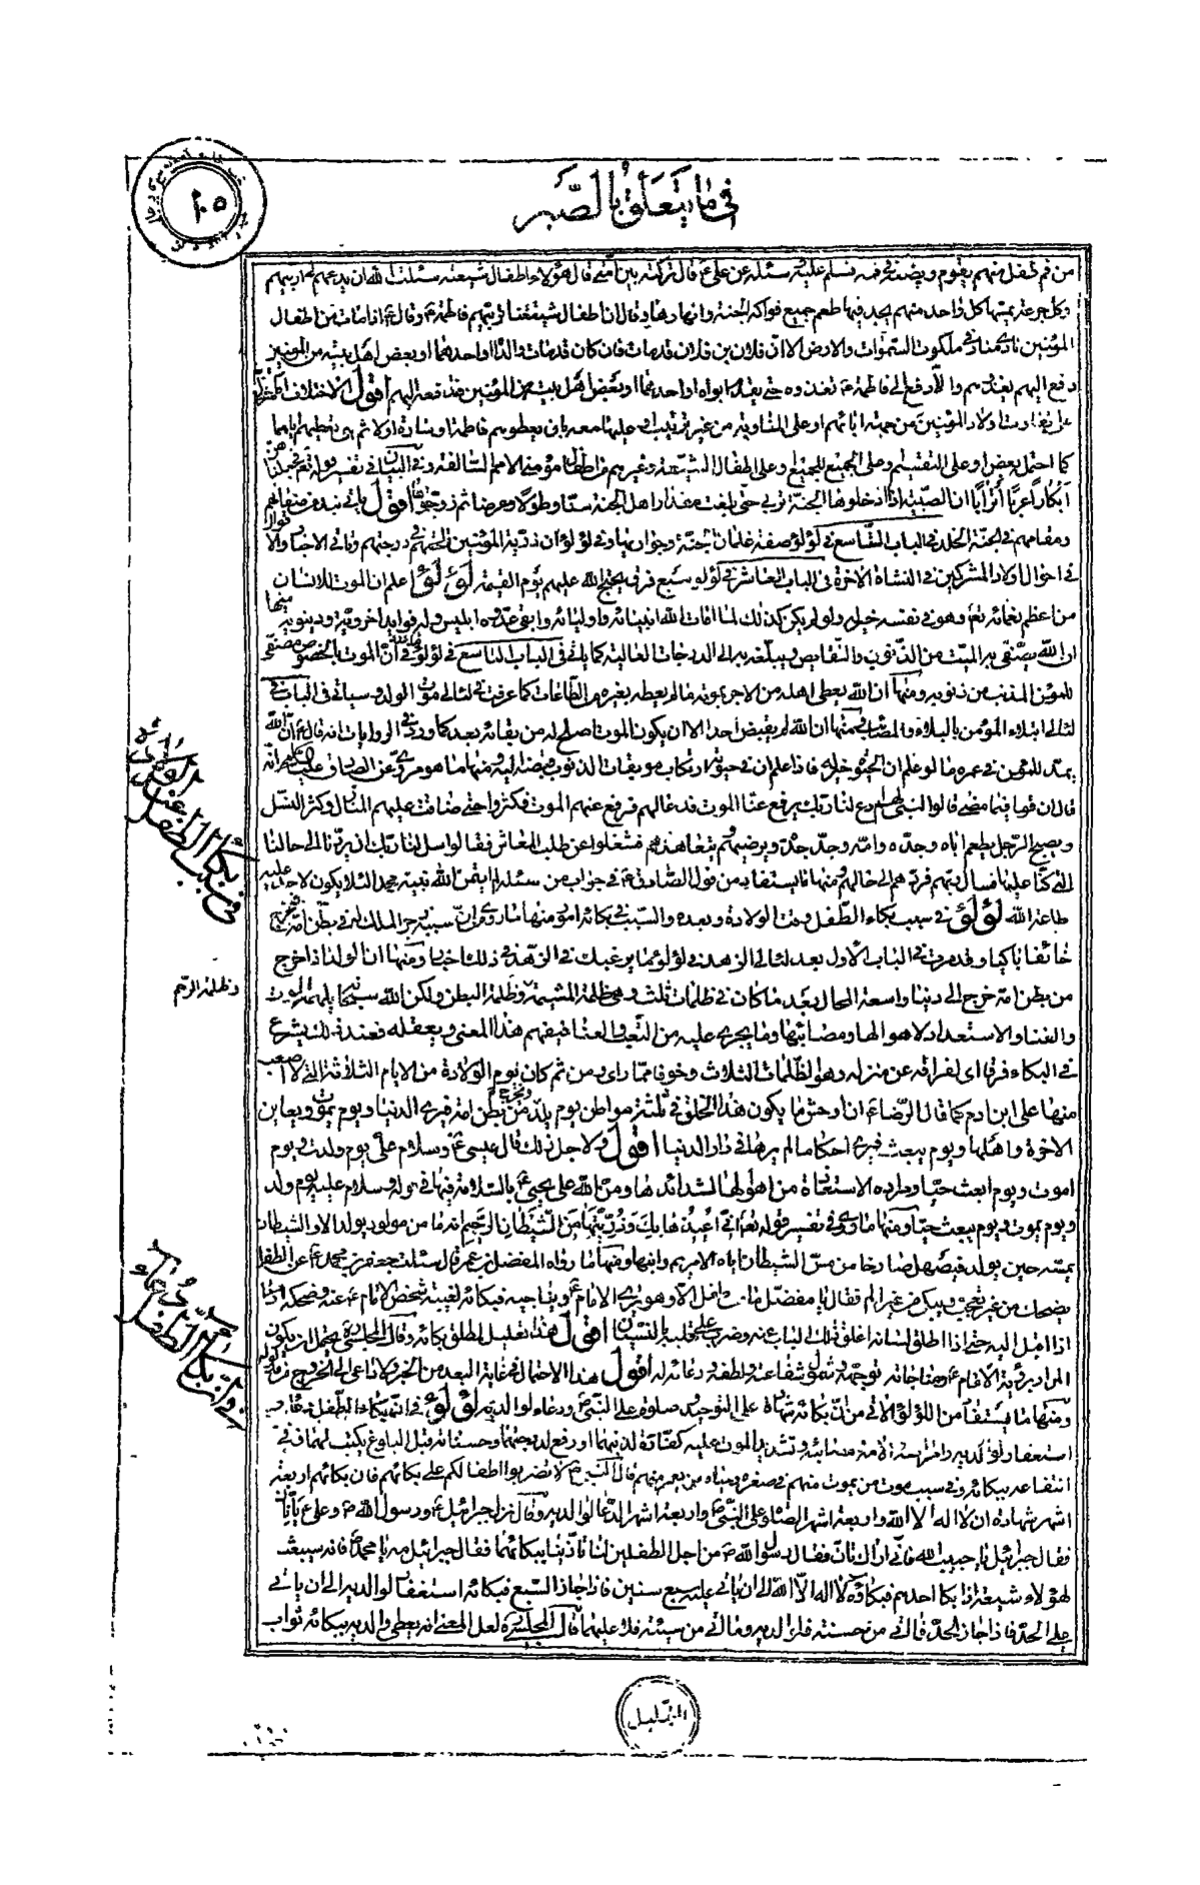 في ما يتعلق بالصبر
١٠٥
من فم طفل منهم يقوم ويضعه في فمه فسلم عليه ثم سئله عن علي ع قال تركته بين أمتي قال هؤلاء اطفال شيعته سئلت الله ان يدعهم لم اربيهم
وكل جرعة يمتصها كل واحد منهم يجد فيها طعم جميع فواكه الجنة وانهارها وقال ان اطفال شيعتنا تربيهم فاطمة ع وقال ع اذا مات من اطفال
المؤمنين نادى مناد في ملكوت السموات والارض الا ان فلان بن فلان قد مات فان كان قد مات والداه او احدهما او بعض اهل بيته من المؤمنين
دفع اليهم يغذونهم والا دفع الى فاطمة ع تغذوه حتى يقدم ابواه او احدهما او بعض اهل بيته من المؤمنين فتدفعه اليهم اقول الاختلاف
اولاد المؤمنين من جهة ابائهم او على المشاوية من غير ترتيب معه بان يعطوهم فاطمة او سارة اولا ثم هي تعطيهم
كما احتمل بعض او على التقسيم وعلى الجميع للجميع وعلى اطفال الشيعة وغيرهم من اطفال مؤمني الامم السالفة وفي البيان في تفسير قوله تع فجعلناهن
أبكارا عربا أترابا ان الصبية اذا دخلوها الجنة تربي حتى بلغت مقدار اهل الجنة سنا وطولا وعرضا ثم زوجوها اقول يأتي
ومقامهم في الجنة الخلد في الباب التاسع في لؤلؤ صفة غلمان الجنة وجوارها وفي لؤلؤ ان ذرية المؤمنين تلحقهم في درجتهم وفي
في احوال اولاد المشركين في النشاة الاخرة في الباب العاشر في لؤلؤ سبع فرق يحتج الله عليهم يوم القيمة لؤلؤ اعلم ان الموت للانسان
من اعظم نعمائه تع وهو في نفسه خير له ولو لم يكن كذلك لما امات الله انبيائه واوليائه وابقى عدوه ابليس وله فوايد اخروية ودنيوية منها
ان الله يصفي به الميت من الذنوب والنقايص ويبلغه به الى الدرجات العالية كما يأتي في الباب التاسع في لؤلؤ في ان الموت بالخصوص مصفي
للمؤمن المذنب من ذنوبه ومنها ان الله يعطي اهله من الاجر بموته ما لم يعطه بغيره من الطاعات كما عرفت في لئالي موت الولد وسيأتي في الباب في
لئالي ابتلاء المؤمن بالبلاء والمصائب ومنها ان الله لم يقبض احدا الا ان يكون الموت اصلح له من بقائه بعد كما ورد في الروايات انه قال ع ان الله
يمد للمؤمن في عمره ما لو علم ان الحيوة خير له فاذا علم ان في حيوته ارتكاب موبقات الذنوب قبضه اليه ومنها ما هو مروى عن الصادق عليه السلام انه
قال ان قوما فيما مضى قالوا النبي لهم ادع لنا ربك يرفع عنا الموت فدعا لهم فرفع عنهم الموت فكثروا حتى ضاقت عليهم المنازل وكثر النسل
ويصبح الرجل يطعم اباه وجده وامه وجد جده ويرضيهم ويتعاهدهم فشغلوا عن طلب المعاش فقالوا سل لنا ربك ان يردنا الى حالنا
التي كنا عليها فسال ربهم فردهم الى حالهم ومنها ما يستفاد من قول الصادق ع في جواب من سئله لم يقبض الله نبيه محمد لئلا يكون لاحد عليه
طاعة الله لؤلؤ في سبب بكاء الطفل وقت الولادة وبعده والسبب في بكائه امور منها ما روى ان سببه زجر الملك له في بطن امه فيخرج
خائفا باكيا وقد مرت في الباب الاول بعد لئالي الزهد في لؤلؤ مما يرغبك في الزهد في ذلك ومنها ان الولد اذا خرج
من بطن امه خرج الى دنيا واسعة الحال بعد ما كان في ظلمات ثلث وهي ظلمة المشيمة وظلمة البطن ولكن الله سبحانه يلهمه الموت
وظلمة الرحم
والفناء والاستعداد لاهوالها ومصائبها وما يجرى عليه من التعب والعناء فيفهم هذا المعنى ويعقله فعند ذلك يشرع
في البكاء فرقا اى لفراقه عن منزله وهو الظلمات الثلاث وخوفا مما راى ومن ثم كان يوم الولادة من الايام الثلاثة التي لا اصعب
منها على ابن ادم كما قال الرضا ع ان اوحش ما يكون هذا الخلق في ثلثة مواطن يوم يلد ويخرج من بطن امه فيرى الدنيا ويوم يموت ويعاين
الاخرة واهلها ويوم يبعث فيرى احكاما لم يرها في دار الدنيا اقول ولاجل ذلك قال عيسى ع وسلام علي يوم ولدت ويوم
اموت ويوم ابعث حيا ومراده الاستعاذة من اهوالها الشدائدها ومن الله على يحيى ع بالسلامة فيها في قوله وسلام عليه يوم ولد
ويوم يموت ويوم يبعث حيا ومنها ما روى في تفسير قوله تع اني أعيذها بك وذريتها من الشيطان الرجيم انه ما من مولود يولد الا والشيطان
يمسه حين يولد فيستهل صارخا من مس الشيطان اياه الا مريم وابنها ومنها ما رواه المفضل بن عمر قال سئلت جعفر بن محمد ع عن الطفل
يضحك من غير تعجب ويبكى من غير الم فقال يا مفضل ما من طفل الا وهو يرى الامام ع ويناجيه فبكائه لغيبة شخص الامام ع عنه وضحكه اذا
اقبل اليه حتى اذا اطلق لسانه اغلق ذلك الباب عنه وضرب على قلبه بالنسيان اقول هذا تعليل لمطلق بكائه وقال المجلسي ره يحتمل ان يكون
المراد برؤية الامام ع ومناجاته توجهه وشمول شفاعته ولطفه ودعائه له اقول هذا الاحتمال في غاية البعد من الخبر ولا داعي الى الخروج
ومنها ما يستفاد من اللؤلؤ الاتي من ان بكائه شهادة على التوحيد وصلوة على النبي ص ودعاء لوالديه لؤلؤ في ان بكاء الطفل
استغفار لوالديه
انتفاعه ببكائه وفي سبب موت من يموت منهم في صغره وحياة من يعمر منهم قال النبي ص لا تضربوا اطفالكم على بكائهم فان بكائهم اربعة
اشهر شهادة ان لا اله الا الله واربعة اشهر الصلوة على النبي ص واربعة اشهر الدعاء لوالديه وقال نزل جبرائيل ع ورسول الله ص وعلي ع
فقال جبرائيل يا حبيب الله فقال رسول الله ص من اجل الطفلين تأذينا ببكائهما فقال جبرائيل مه يا محمد ص فانه سيبعث
لهؤلاء شيعة اذا بكا احدهم فبكاؤه لا اله الا الله الى ان يأتي عليه سبع سنين فاذا جاز السبع فبكائه استغفار لوالديه الى ان يأتي
على الحد فاذا جاز الحد فما اتى من حسنة فلوالديه وما اتى من سيئة فلا عليهما قال المجلسي ره لعل المعنى انه يعطي والديه ببكائه ثواب
في سبب بكاء الطفل عند الولادة
في ان بكاء الطفل دعاء
التهليل